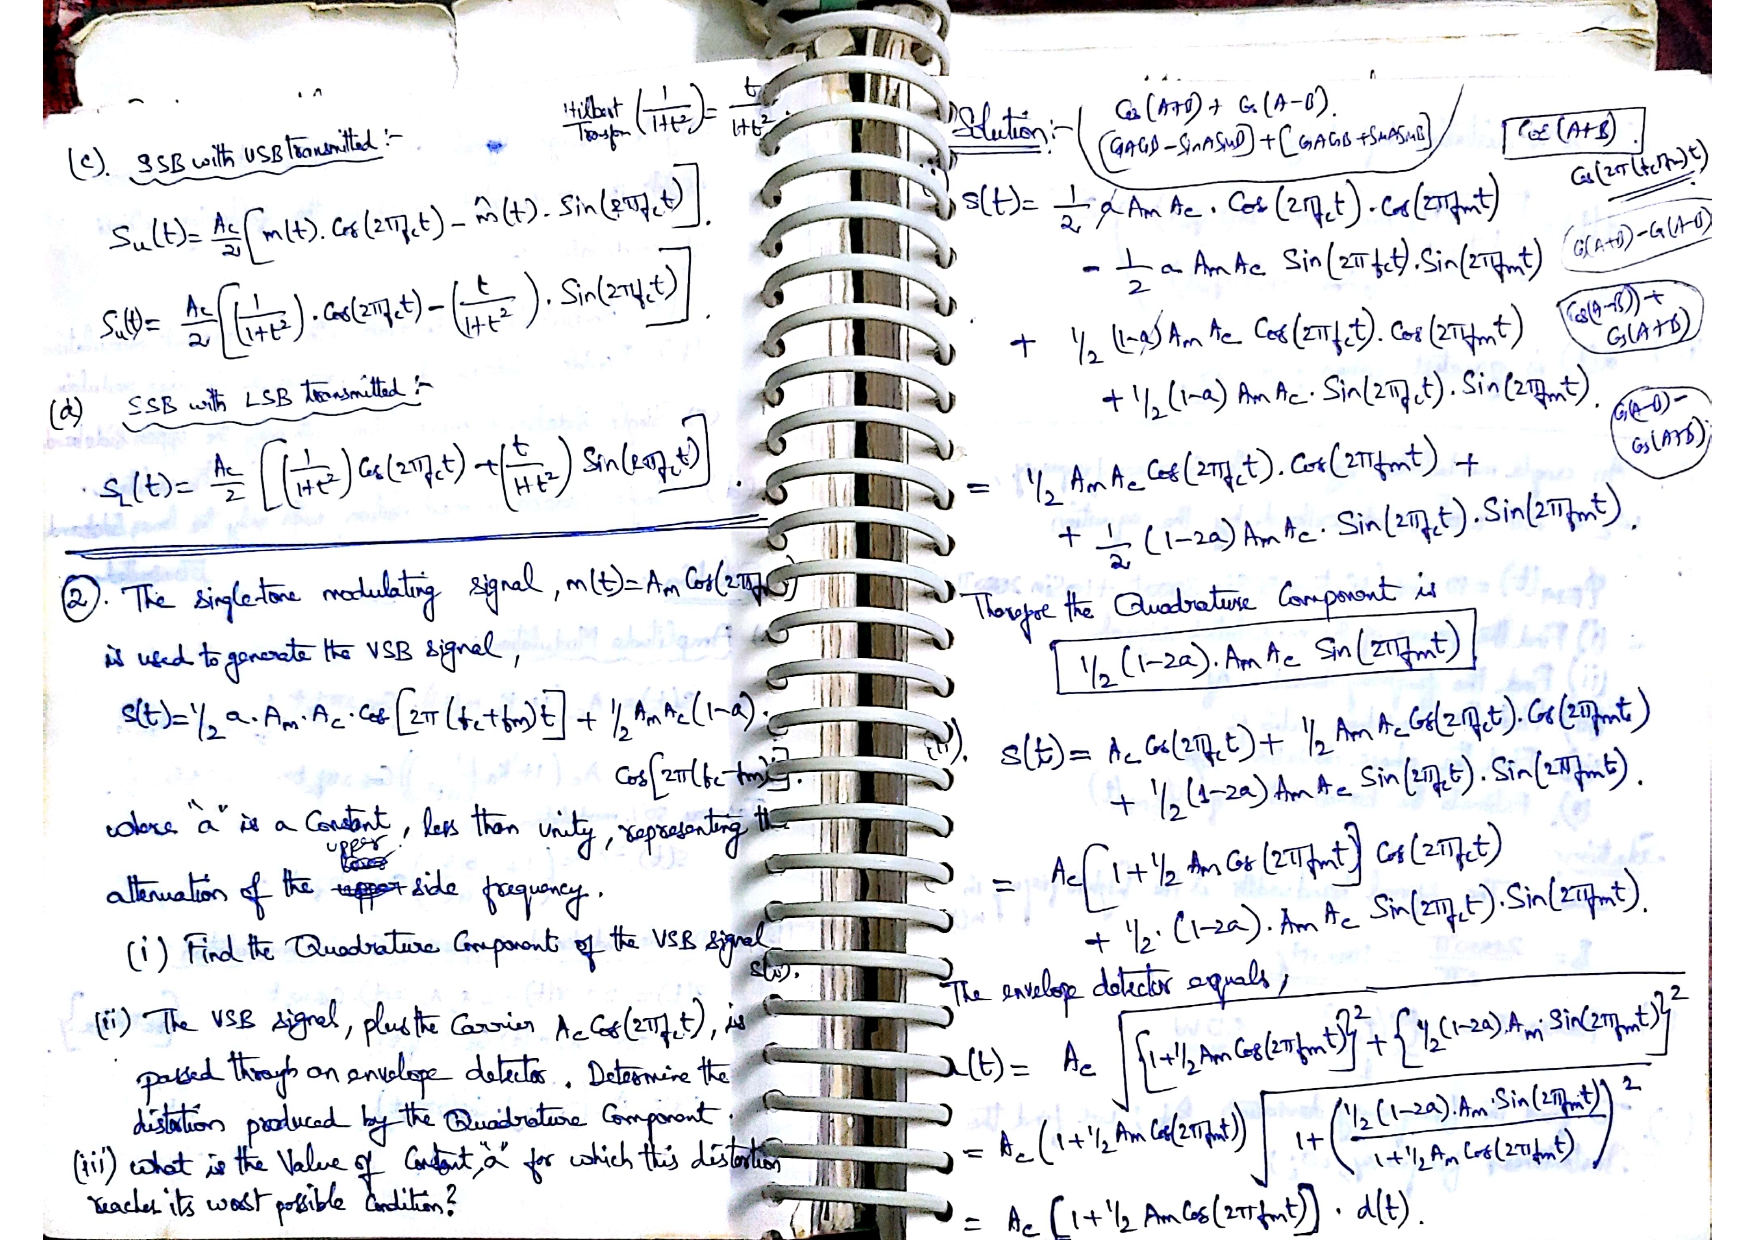 Hilbert Transfom (1/(1+t²)) = t/(1+t²).
(c). SSB with USB transmitted :-
Su(t) = Ac/2 [m(t). Cos(2πfct) - m̂(t). Sin(2πfct)].
Su(t) = Ac/2 [(1/(1+t²)). Cos(2πfct) - (t/(1+t²)). Sin(2πfct)].
(d) SSB with LSB transmitted :-
SL(t) = Ac/2 [(1/(1+t²)) Cos(2πfct) + (t/(1+t²)) Sin(2πfct)].
②. The single-tone modulating signal, m(t) = Am Cos(2πfmt)
is used to generate the VSB signal,
S(t) = ½ a. Am. Ac. Cos [2π (fc+fm) t] + ½ Am Ac (1-a).
Cos [2π (fc-fm)t].
where "a" is a Constant, less than unity, representing the
upper
attenuation of the side frequency.
(i) Find the Quadrature Component of the VSB signal
S(t).
(ii) The VSB signal, plus the Carrier Ac Cos(2πfct), is
passed through an envelope detector. Determine the
distortion produced by the Quadrature Component.
(iii) what is the Value of Constant, "a" for which this distortion
reaches its worst possible Condition?
Solution :-
Cos(A+B) + Cos(A-B).
[CosACosB - SinASinB] + [CosACosB + SinASinB]
Cos(A+B).
Cos(2π(fc+fm)t)
S(t) = 1/2 a Am Ac. Cos(2πfct). Cos(2πfmt)
- 1/2 a Am Ac Sin(2πfct). Sin(2πfmt)
Cos(A+B) - Cos(A-B)
+ ½ (1-a) Am Ac Cos(2πfct). Cos(2πfmt)
Cos(A-B) +
Cos(A+B)
+ ½ (1-a) Am Ac. Sin(2πfct). Sin(2πfmt).
Cos(A-B) -
Cos(A+B)
= ½ Am Ac Cos(2πfct). Cos(2πfmt) +
+ 1/2 (1-2a) Am Ac. Sin(2πfct). Sin(2πfmt).
Therefore the Quadrature Component is
½ (1-2a). Am Ac Sin(2πfmt)
(ii). S(t) = Ac Cos(2πfct) + ½ Am Ac Cos(2πfct). Cos(2πfmt)
+ ½ (1-2a) Am Ac Sin(2πfct). Sin(2πfmt).
= Ac [1 + ½ Am Cos(2πfmt)] Cos(2πfct)
+ ½. (1-2a). Am Ac Sin(2πfct). Sin(2πfmt).
The envelope detector equals,
a(t) = Ac √({1+½ Am Cos(2πfmt)}² + {½(1-2a). Am. Sin(2πfmt)}²)
= Ac (1+½ Am Cos(2πfmt)) √(1 + (½(1-2a). Am. Sin(2πfmt) / 1+½ Am Cos(2πfmt))²)
= Ac [1 + ½ Am Cos(2πfmt)]. d(t).